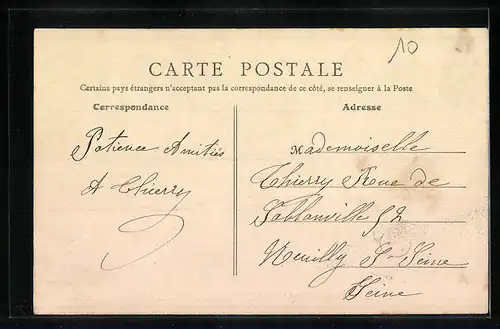 10
CARTE POSTALE
Certains pays étrangers n'acceptant pas la correspondance de ce côté, se renseigner à la Poste
Correspondance
Adresse
Patience Amitiés
A Thierry
Mademoiselle
Thierry Roue de
Sablonville 52
Neuilly S- Seine
Seine